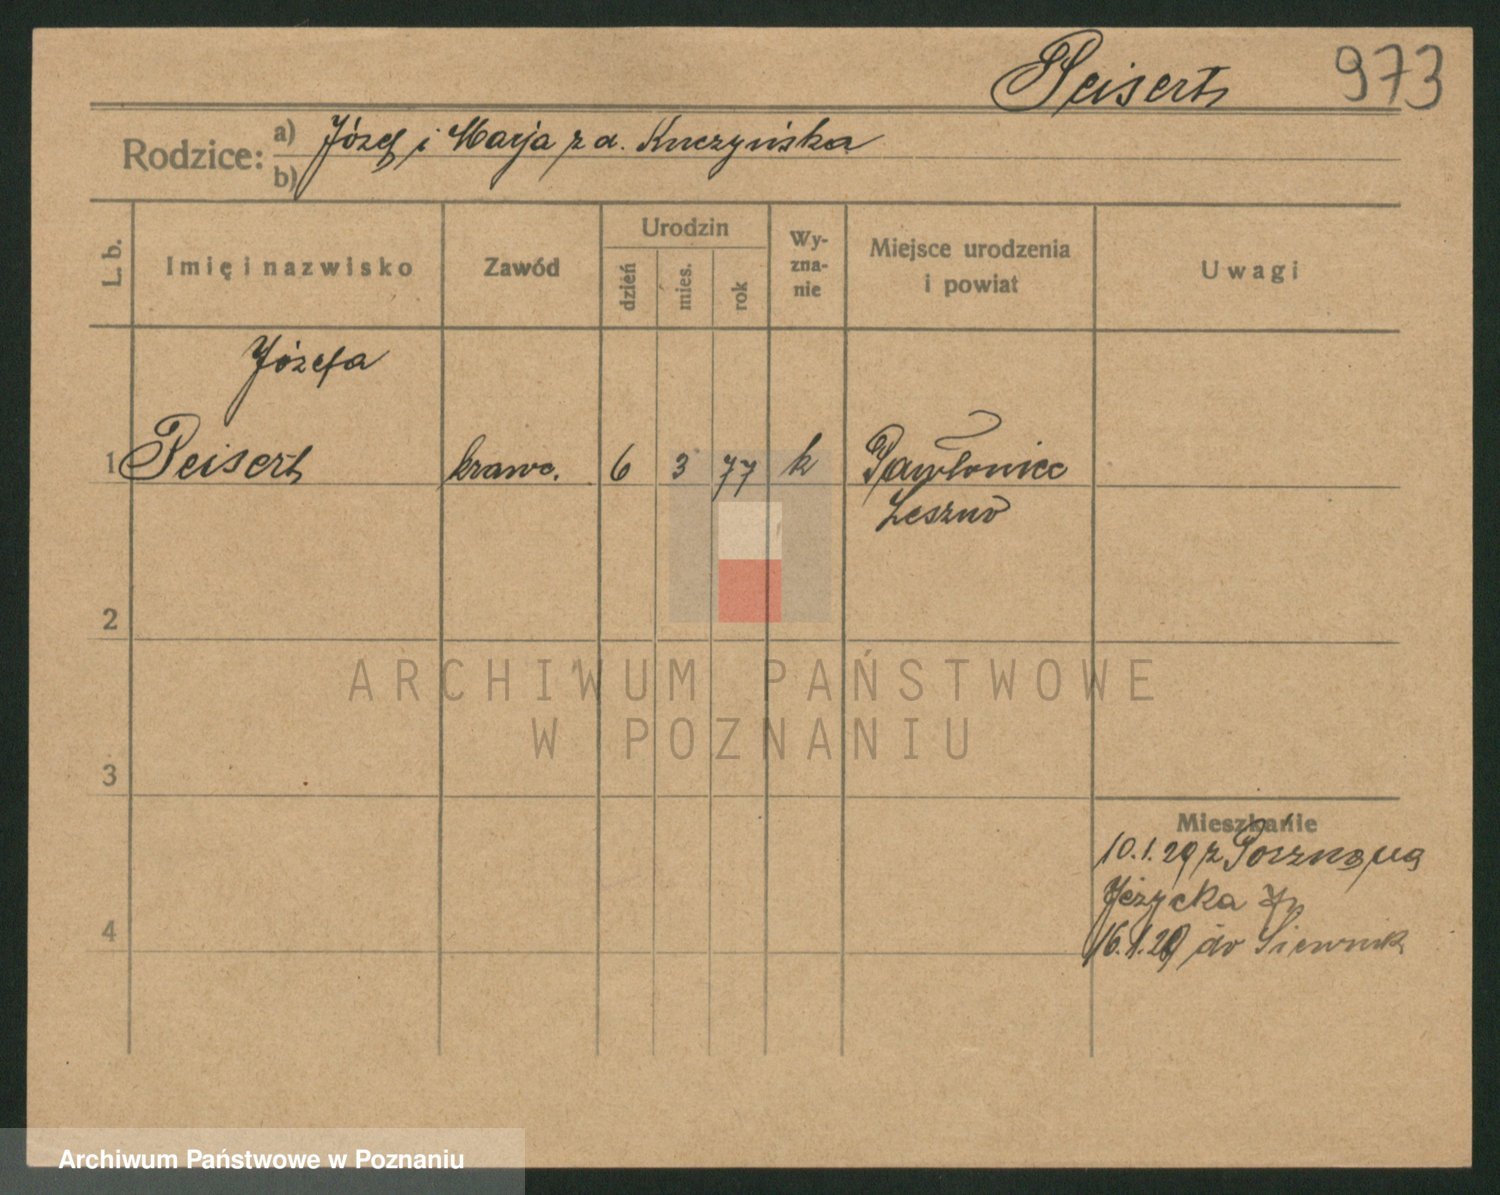 Peisert 973
Rodzice: a) Józef i Marja z d. Kuczyńska
b)
L. b. Imię i nazwisko Zawód Urodzin dzień mies. rok Wy-zna-nie Miejsce urodzenia i powiat Uwagi
Józefa
1 Peisert krawc. 6 3 77 k Pawłowice
Leszno
2
ARCHIWUM PAŃSTWOWE
W POZNANIU
3
Mieszkanie
10.1.29 z Poznania
Jeżycka
4 16.1.29 do
Archiwum Państwowe w Poznaniu